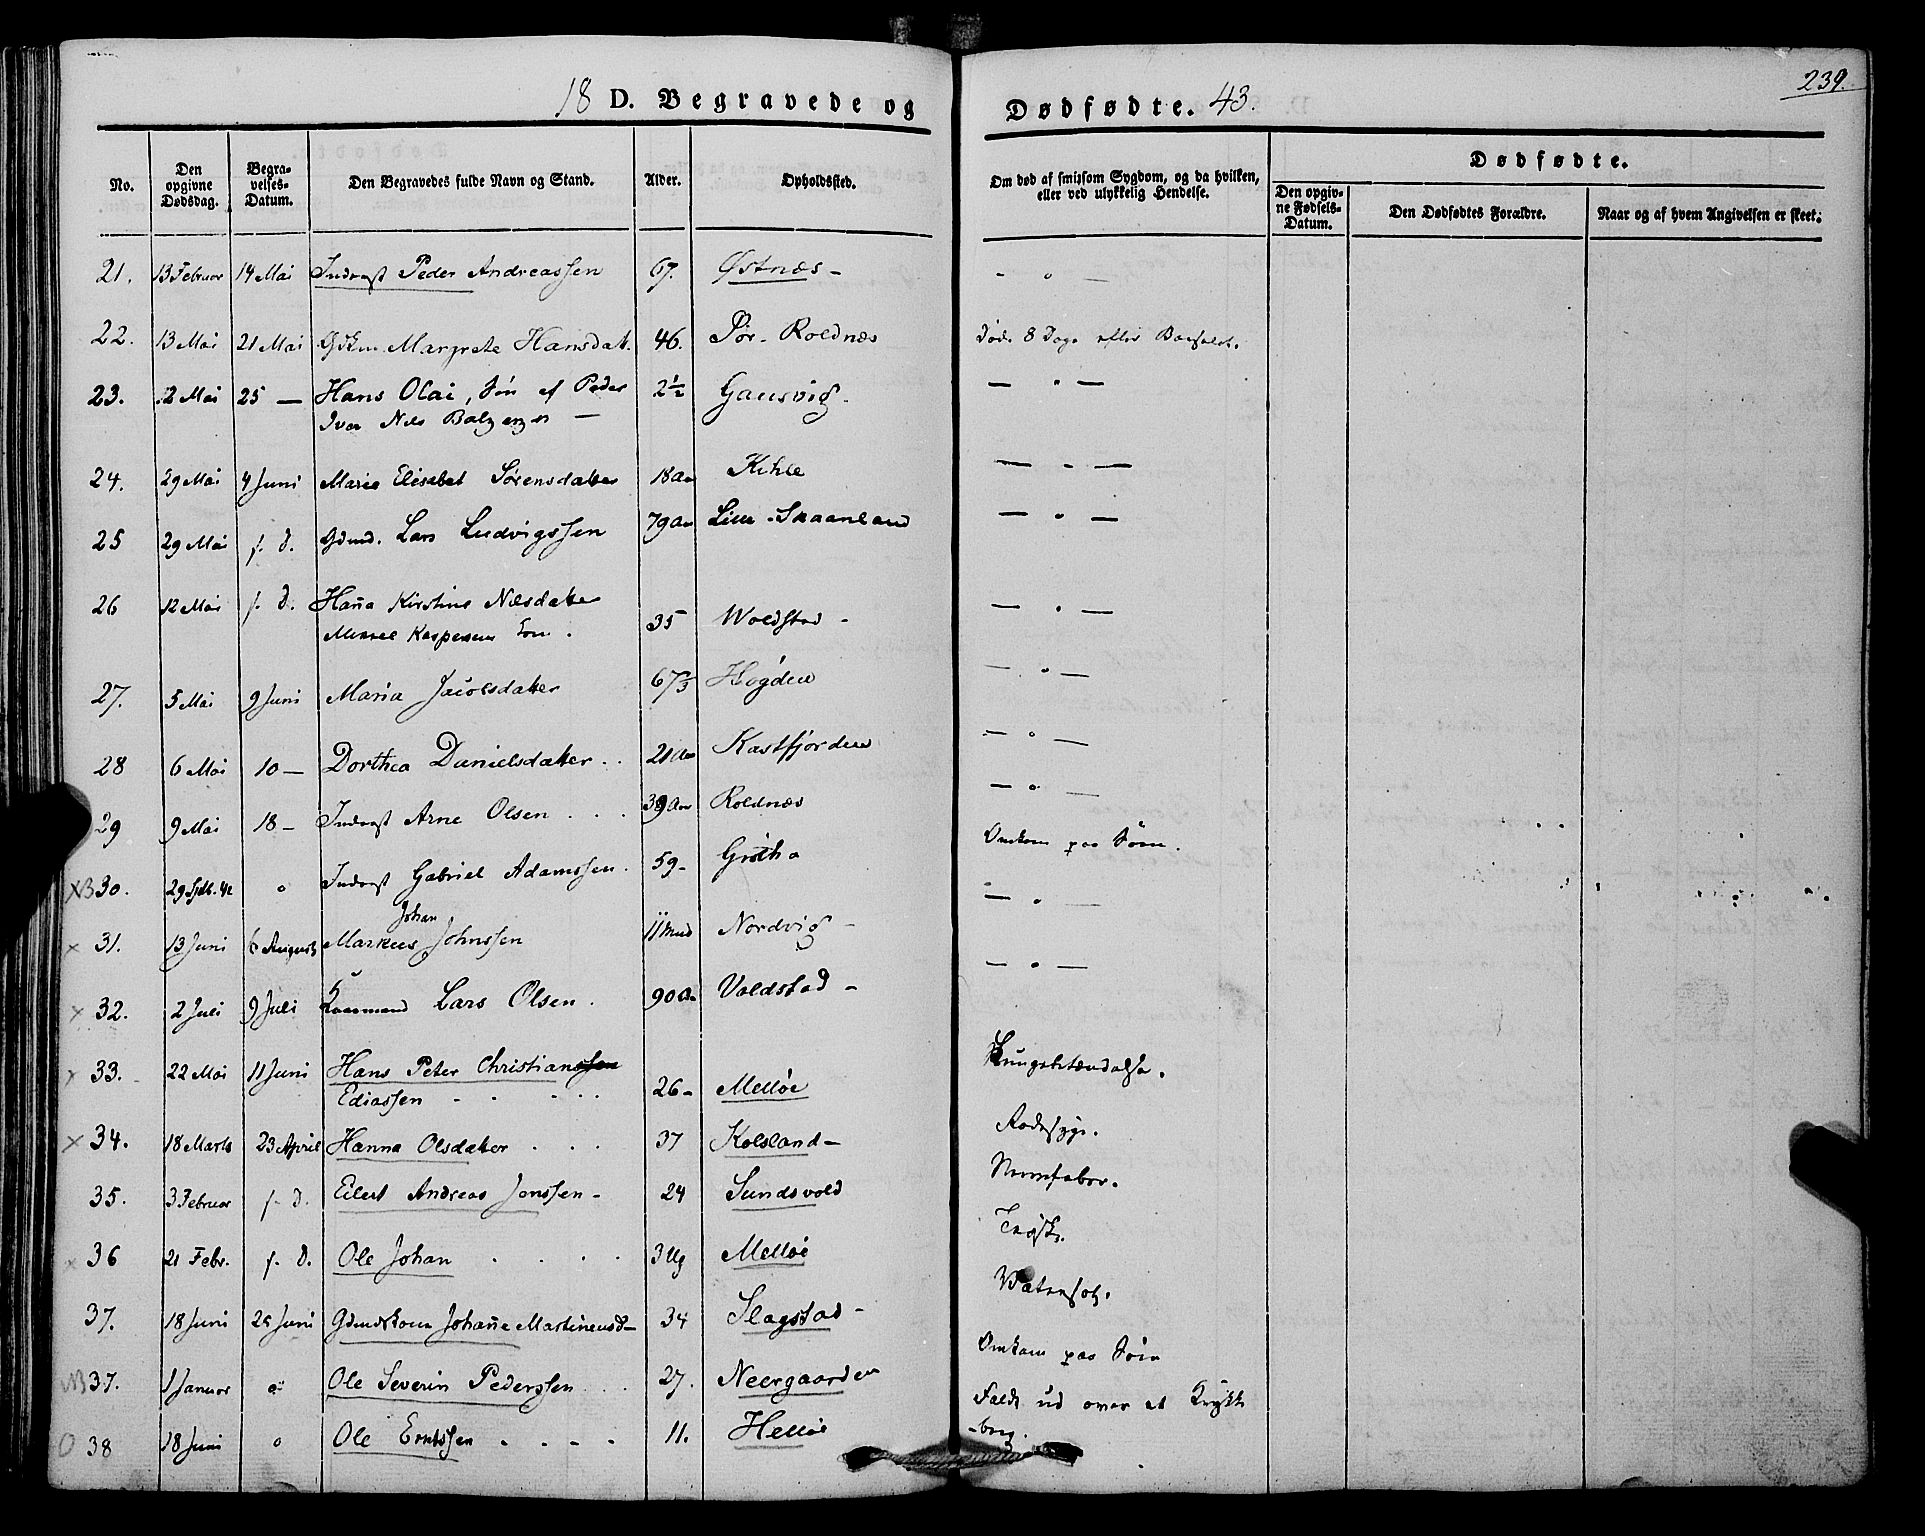 239.
18 D. Begravede og Dødfødte. 43.
No.
Den opgivne Dødsdag.
Begravelses-Datum.
Den Begravedes fulde Navn og Stand.
Alder.
Opholdssted.
Om død af smitsom Sygdom, og da hvilken, eller ved ulykkelig Hendelse.
Dødfødte.
Den opgivne Fødsels-Datum.
Den Dødfødtes Forældre.
Naar og af hvem Angivelsen er skeet.
21. 13 Februar 14 Mai Inderst Peder Andreassen 67. Østnæs - - " -
22. 13 Mai 21 Mai Margrete Hansdat. 46. Sør-Roldnæs Døde 8 Dage efter Barselet.
23. 12 Mai 25 — Hans Olai, Søn af Peder 2½ Gausvig. — " —
24. 29 Mai 4 Juni Marie Elisabet Sørensdatter 18 Aar Kihle — " —
25 29 Mai f. d. Gdmd. Lars Ludvigssen 79 Aar Lille-Skaanland — " —
26 12 Mai f. d. Han̄a Kirstine Nilsdatter
35 Woldstad - — " —
27. 5 Mai 9 Juni Maria Jacobsdatter 67⅔ Høgden — " —
28 6 Mai 10 — Dorthea Danielsdatter . . 21 Aar Kastfjorden — " —
29 9 Mai 18 — Inderst Arne Olsen . . . 39 Aar Roldnæs — " —
NB 30. 29 42 " Inderst Gabriel Adamssen. 59 - Grøtha Omkom paa Søen.
Johan
× 31. 13 Juni 6 August Markus Johnssen 11 Mnd Nordvig - — " —
× 32. 2 Juli 9 Juli Kaarmand Lars Olsen . 90 Aar Voldstad - — " —
× 33. 22 Mai 11 Juni Hans Peter Christianssen
Ediassen - - - - 26 - Melløe Lungebetændelse.
× 34. 18 Marts 23 April Hanna Olsdatter . . . 37 Kolsland - Rodesyge.
35. 3 Februar f. d. Eilert Andreas Jenssen - 24 Sundsvold Nervefeber.
× 36 21 Febr. f. d. Ole Johan . . . . 3 Ug Melløe Trøske.
37. 18 Juni 25 Juni Gdmdskone Johan̄e Martinusd- 34 Slagstad - Vatersot.
NB 37. 1 Januar " Ole Severin Pederssen . . 27. Neergaarden Omkom paa Søen
0 38 18 Juni " Ole Erntssen . - - - 11. Helløe Faldt ud over et